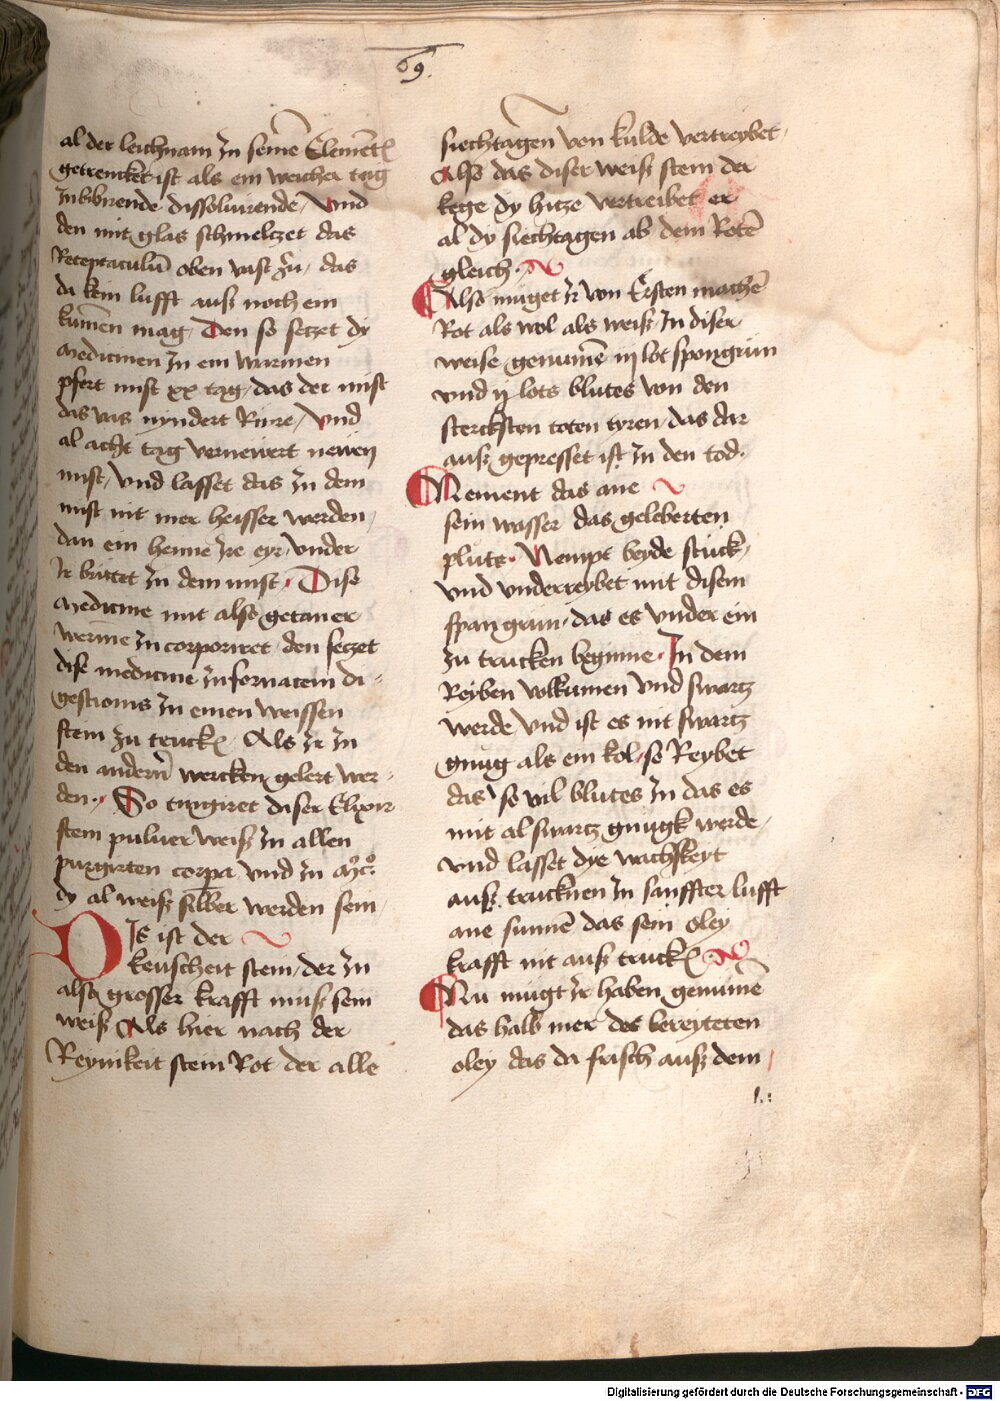 69.
al der leichnam Jn seinē Elemēt
getrencket ist als ein weicher taig
Jnbibirende dissoluirende, Vnd
den mit glas schmeltzet das
Receptaculū oben vast zu, das
da kein lufft auß noch ein
kumen mag, Den so seczet dy
Medicinen Jn ein warmen
pfert mist xx tag, das der mist
das vas nyndert Rure, Vnd
al acht tag vernewert newen
mist, Vnd lasset das Jn dem
mist nit mer heisser werden,
dan ein henne Jre eyr, Vnder
Jr brütet Jn dem mist, Dise
Medicine mit also getaner
werme Jncorporiret, den seczet
dise medicine Jn fornacem di-
gestionis Jn einen weissen
stein zu truck, Als Jr Jn
den andern wercken gelert wer-
den, So tingiret diser Elixir
stein puluer weiß Jn allen
purgirten corpa Vnd Jn
dy al weiß silber werden sein,
DJs ist der
keuscheit stein, der Jn
also grosser krafft muß sein
weiß Als hier nach der
Reynikeit stein Rot der alle
siechtagen von kulde vertreybet,
Also das diser weiß stein der
kege dy hitze vertreibet er
al dy siechtagen ab dem Rotē
gleich.
Also muget Jr von Ersten machē
Rot als wol als weiß, Jn diser
weise, genumē iij lot spongrün
vnd ij lots blutes von den
stercksten toten tyren, das dar
auß gepresset ist Jn den tod.
Nement das ane
sein wasser das geleberten
pluts. Nempt beyde stuck,
vnd vnderreybet mit disem
span grün, das es Vnder ein
zu trucken beginne. Jn dem
Reyben volkumen Vnd swartz
werde, Vnd ist es nit swartz
gnug als ein kol, so Reybet
das so vil blutes Jn das es
mit al swartz gnugk werde,
Vnd lasset dye wachskeyt
auß trucknen Jn sanffter lufft
ane sunnē das sein oley
krafft nit auß truck
Nu mugt Jr haben genumē
das halb mer des bereyteten
oley das da frisch auß dem
Digitalisierung gefördert durch die Deutsche Forschungsgemeinschaft - DFG